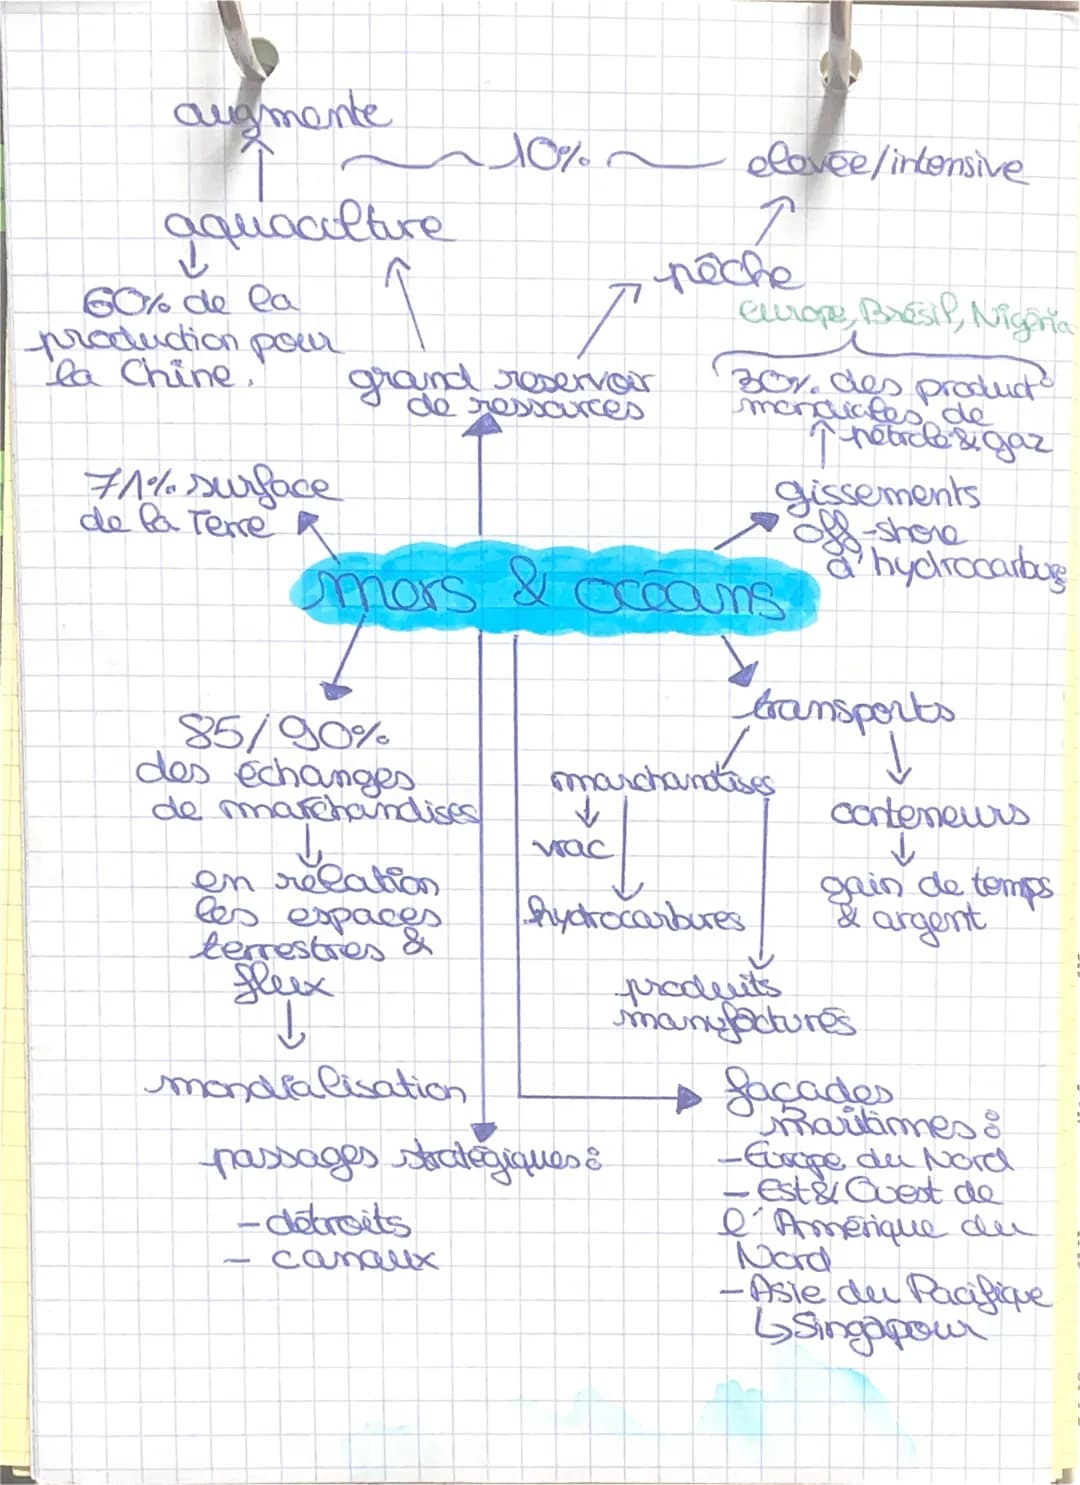 augmente
10%
elevée/intensive
aquaculture
pêche
60% de la
production pour
la Chine.
Europe, Brésil, Nigéria
grand reservoir
de ressources
30% des product°
mondiales de
pétrole & gaz
71% surface
de la Terre
gissements
off-shore
d'hydrocarbures
mers & océans
transports
85/90%
des échanges
de marchandises
marchandises
conteneurs
vrac
gain de temps
& argent
en relation
les espaces
terrestres &
flux
hydrocarbures
produits
manufacturés
mondialisation
façades
maritimes :
passages stratégiques :
- Europe du Nord
- Est & Ouest de
l'Amérique du
Nord
- détroits
- canaux
- Asie du Pacifique
↳ Singapour